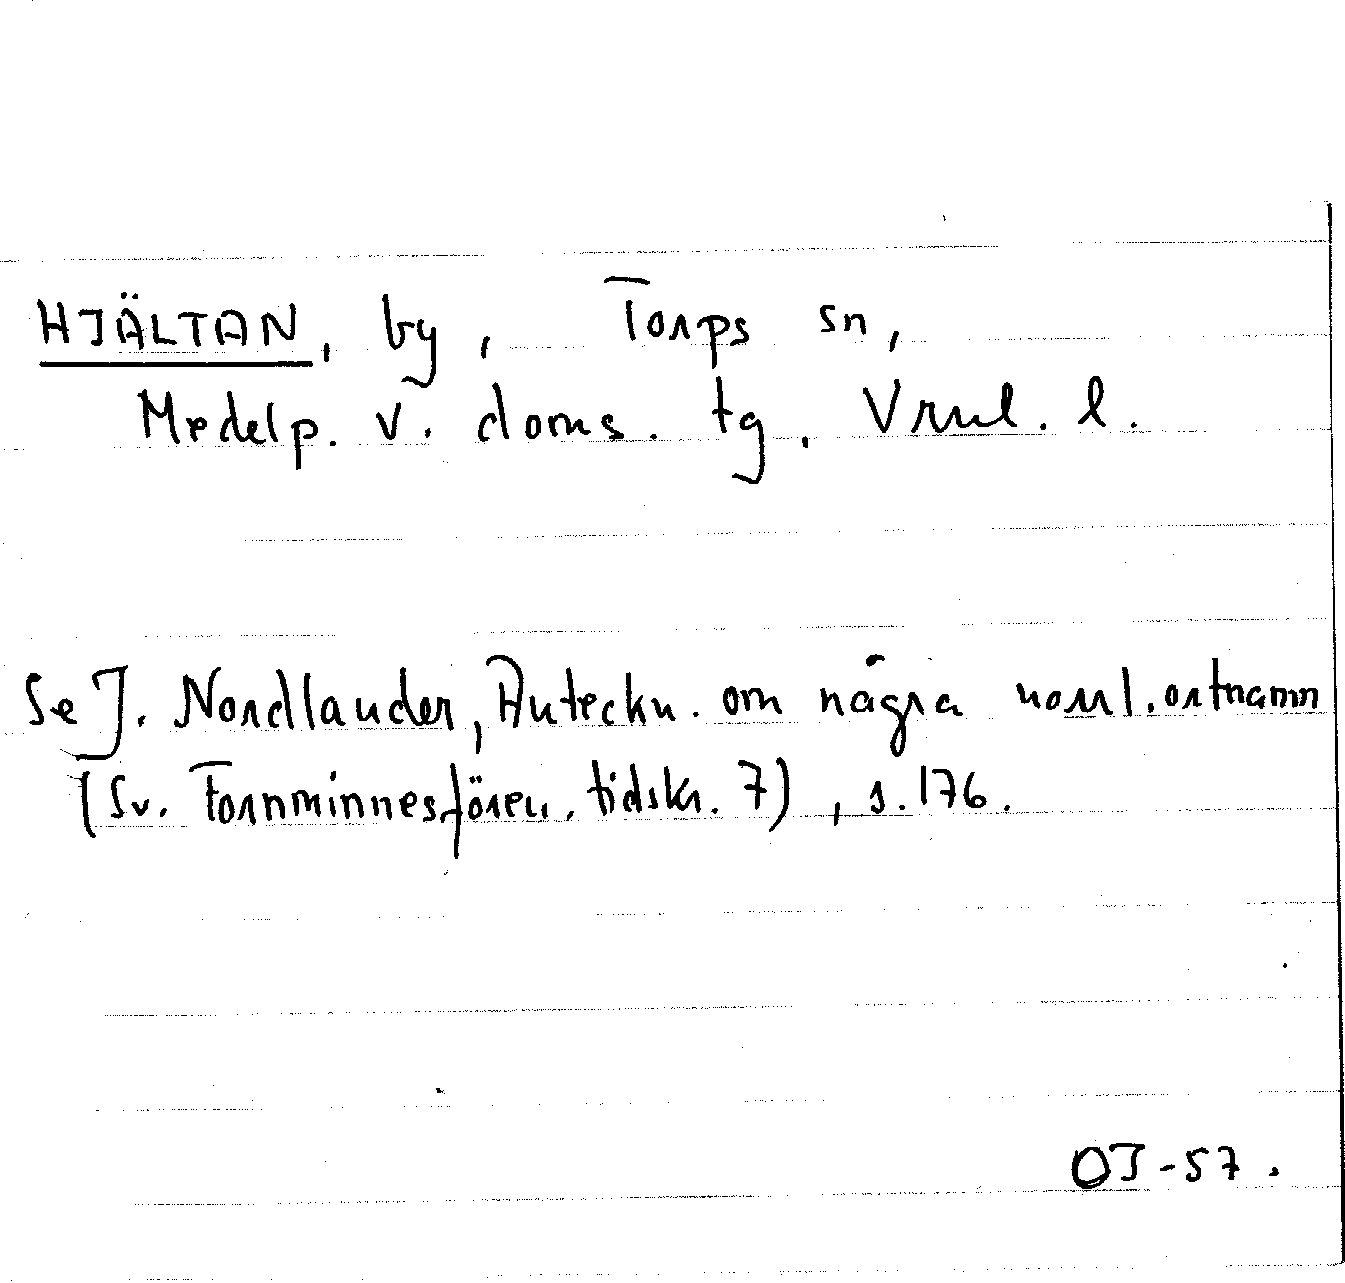 HJÄLTAN, by, Torps sn,
Medelp. v. doms. tg. Vrnl. l.
Se J. Nordlander, Anteckn. om några norrl. ortnamn
(Sv. Fornminnesfören. tidskr. 7), s. 176.
OJ-57.